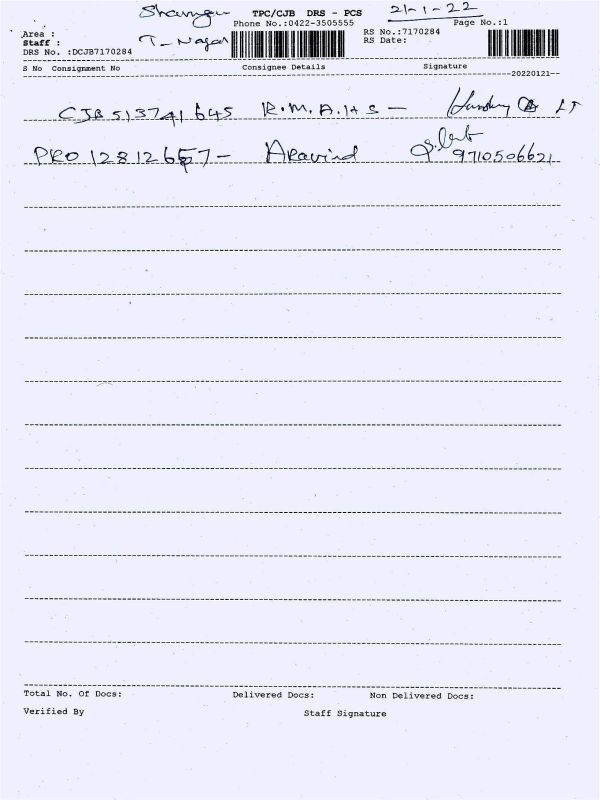 TPC/CJB DRS - PCS 21-1-22
Phone No.:0422-3505555 Page No.:1
Area :
RS No.:7170284
Staff : T-Nagar
RS Date:
DRS No. :DCJB7170284
S No Consignment No Consignee Details Signature
--20220121--
CJB 513741645 R.M.A.H S -
PRO 12812657- Aravind 9710506621
Total No. Of Docs: Delivered Docs: Non Delivered Docs:
Verified By Staff Signature